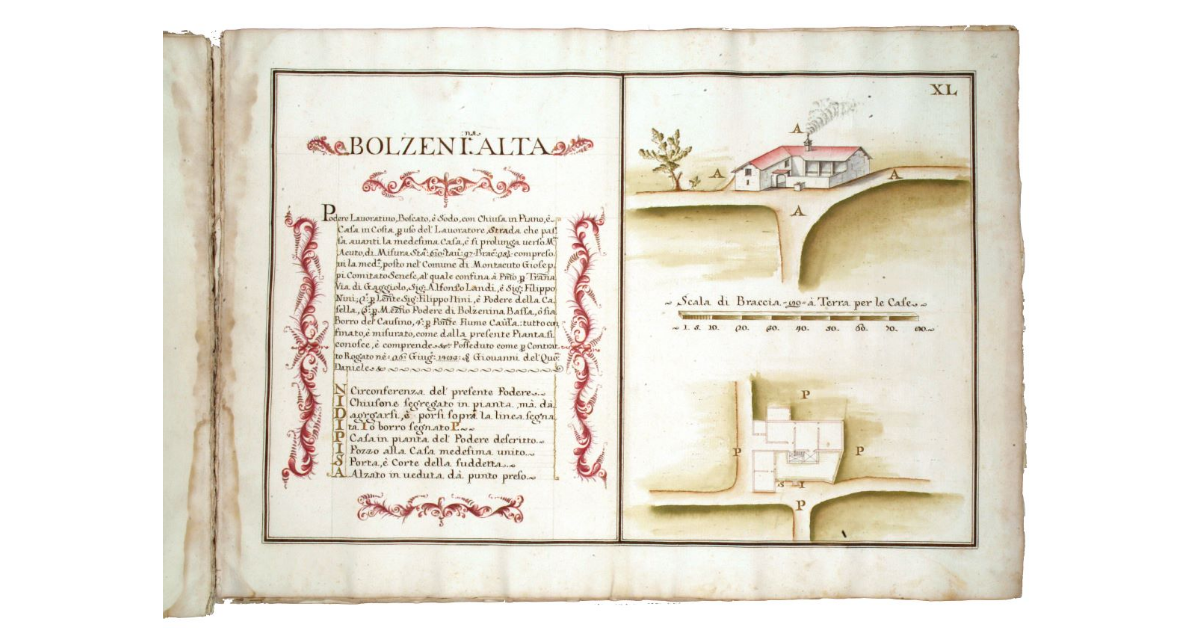 BOLZENI.ⁿᵃ ALTA
Podere Lauoratiuo, Boscato, é Sodo, con Chiusa in Piano, é
Casa in Costa, ꝑ uso del' Lauoratore, Strada che pas
sa auanti la medesima Casa, é si prolunga uerso M.
Acuto, di Misura Sta: Brac: compreso
in la med:ᵃ posto nel' Comune di Montacuto Giosep
pi Comitato Senese, al quale confina á P.mo ꝑ Tra.na
Via di Gaggiolo, Sig: Alfonso Landi, é Sig: Filippo
Nini; ꝑ Leu.te Sig: Filippo Nini, é Podere della Ca
sella, ꝑ Podere di Bolzenina Bassa, ó sia
Borro del' Causino, 4.° ꝑ Pon.te Fiumo tutto con
finato, é misurato, come dalla presente Pianta si
conosce, é comprende Posseduto come ꝑ Contrat
to Rogato né Giug: Giouanni del' Quo:
Daniele
N Circonferenza del' presente Podere
I Chiusone segregato in pianta, má da
D agrgarsi, é porsi sopra la linea segna
ta. I o borro segnato P.
P Casa in pianta del' Podere descritto
I Pozzo alla Casa medesima unito
S Porta, é Corte della suddetta
A Alzato in ueduta dá punto preso
XL
A
A
A
A
Scala di Braccia á Terra per le Case
1. 5. 10. 20. 30. 40. 50. 60. 70. 80.
P
P
P
S I
P